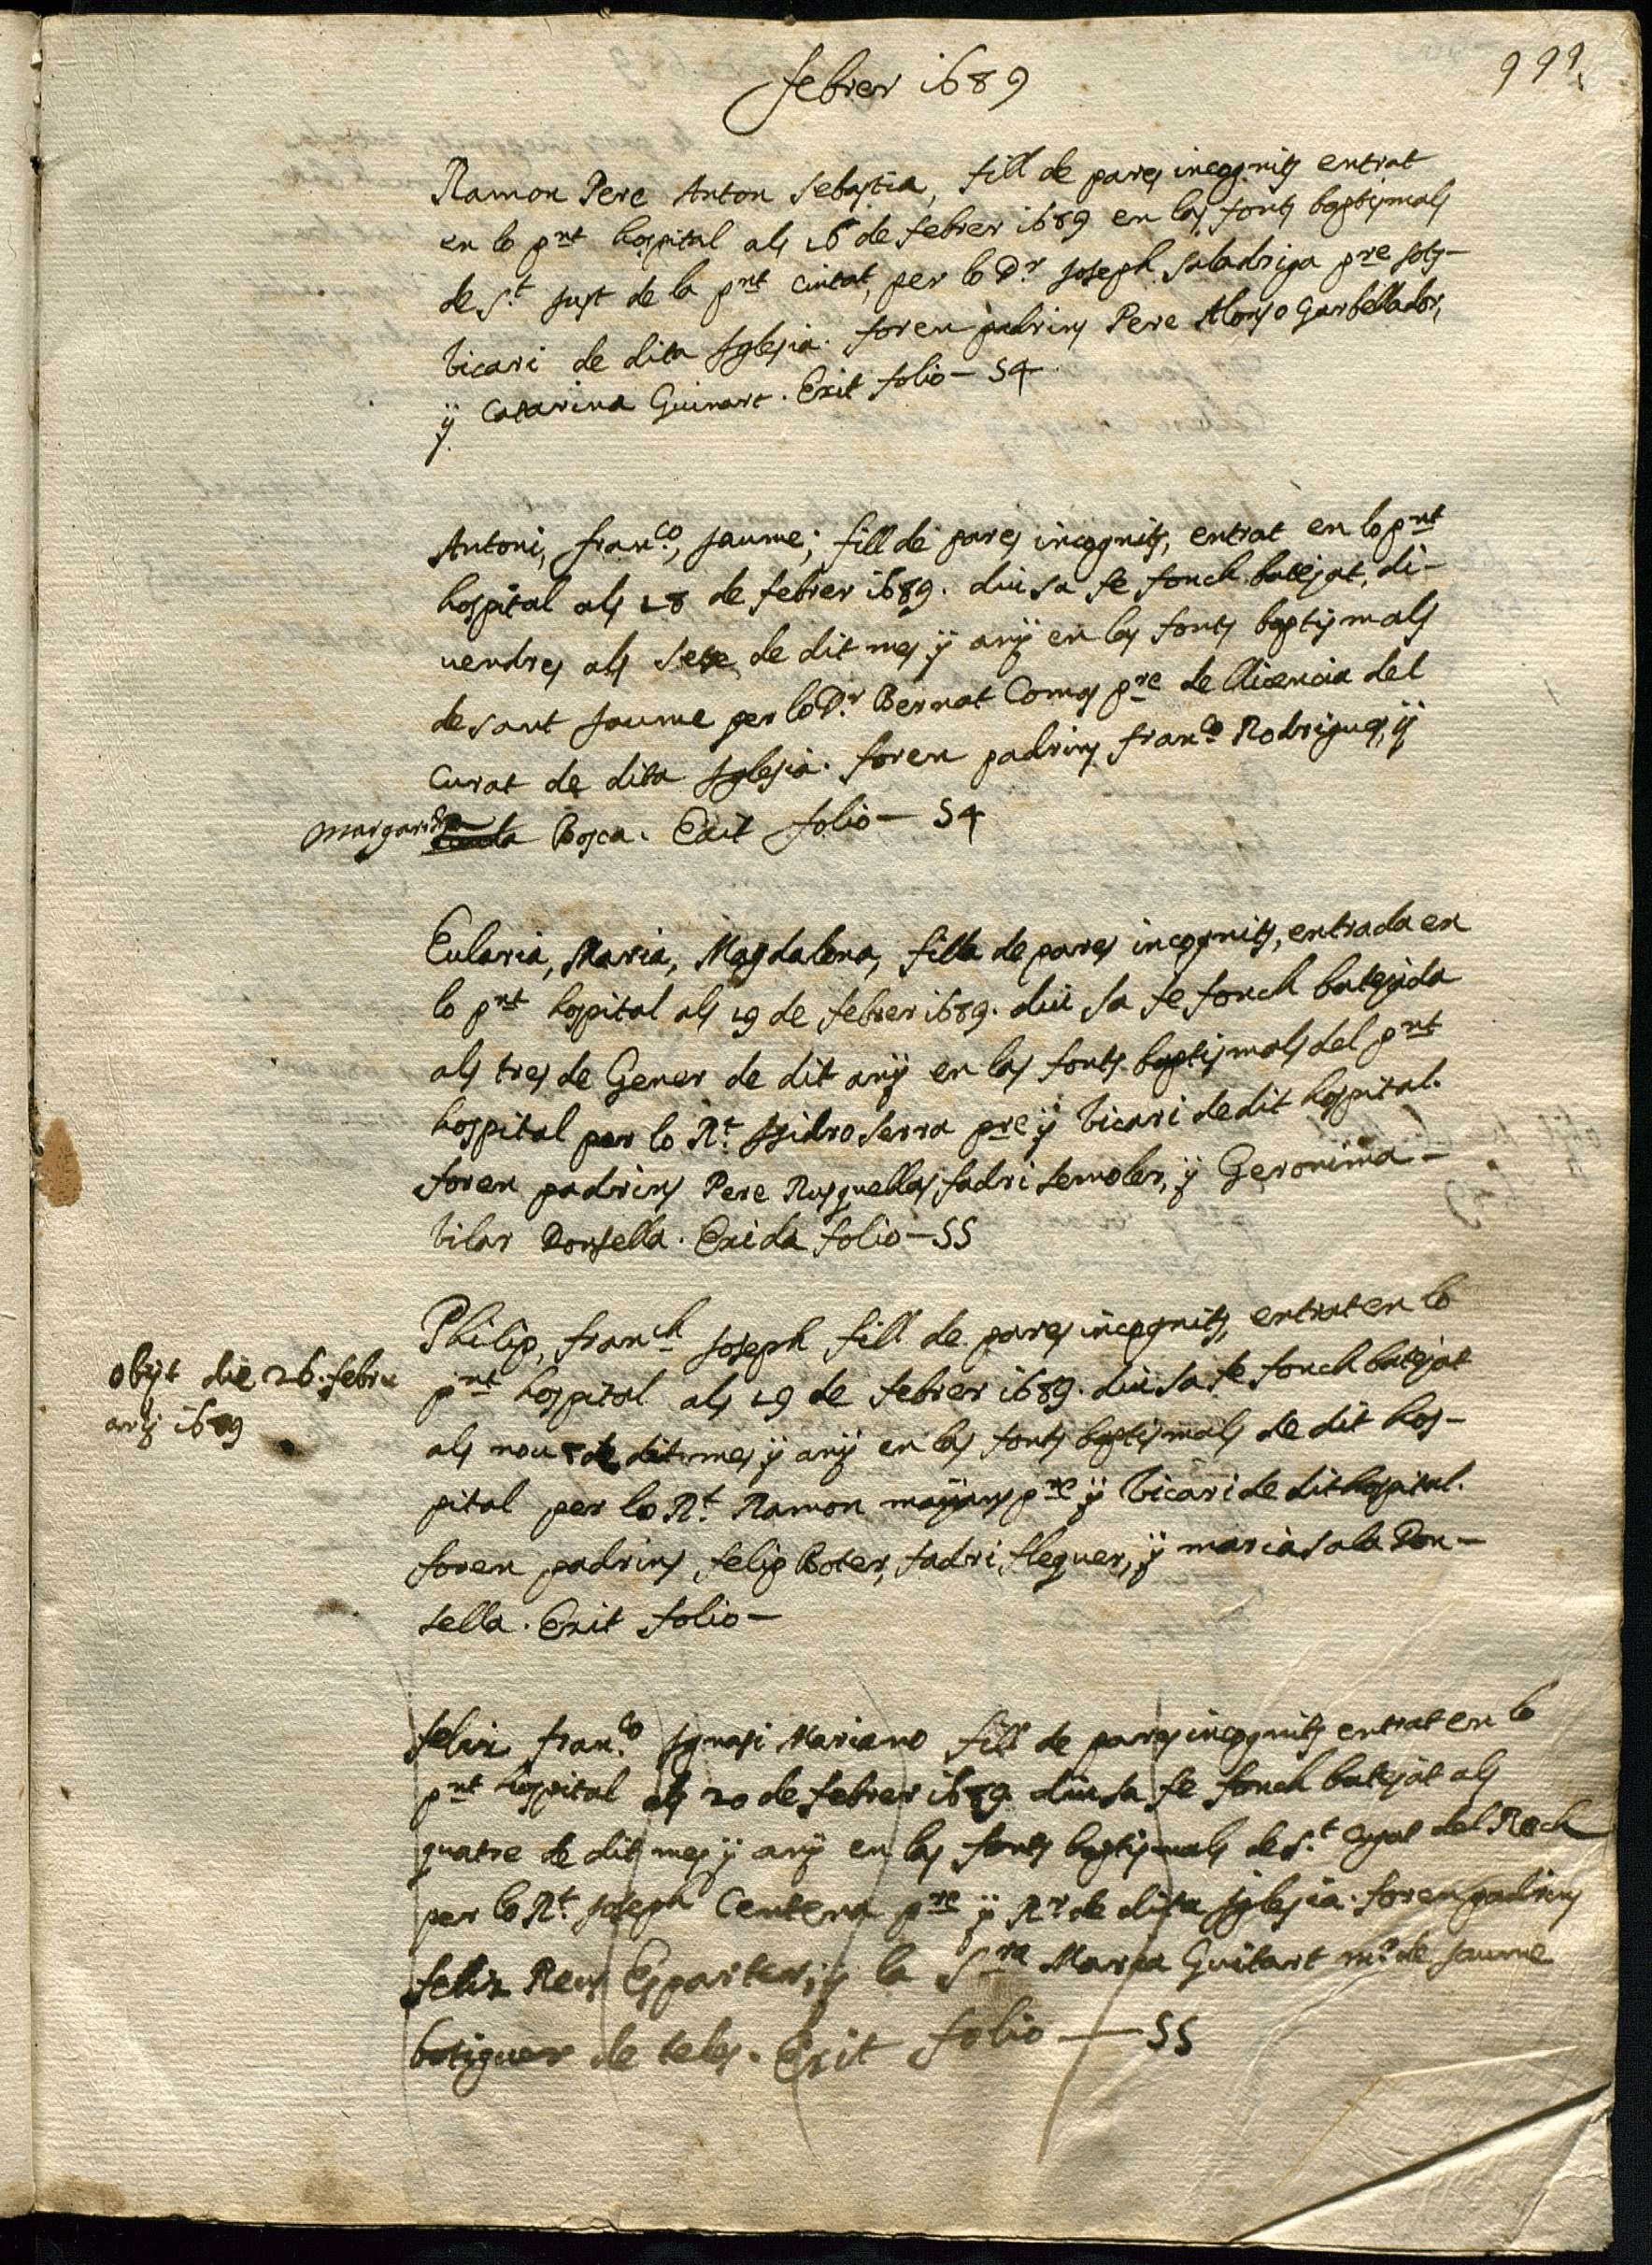 febrer 1689
Ramon Pere Anton Sebastia, fill de pares incognits entrat
en lo pnt hospital als 16 de febrer 1689 en las fonts baptismals
de St Just de la pnt ciutat, per lo Dr Joseph Saladriga pre sots-
vicari de dita Iglesia. foren padrins Pere Alonso Garbellador,
ÿ Catarina Guinart. Exit folio — 54
Antoni, Franco, Jaume; fill de pares incognits, entrat en lo pnt
hospital als 18 de febrer 1689. diu sa fe fonch batejat, di-
vendres als de dit mes ÿ anÿ en las fonts baptismals
de sant Jaume per lo Dr Bernat Comas pre de llicencia del
Curat de dita Iglesia. foren padrins Franco Rodrigues, ÿ
Margarida Bosca. Exit folio — 54
Eularia, Maria, Magdalena, filla de pares incognits, entrada en
lo pnt hospital als 19 de febrer 1689. diu sa fe fonch batejada
als tres de Gener de dit anÿ en las fonts baptismals del pnt
hospital per lo Rt Isidro Serra pre ÿ vicari de dit hospital.
foren padrins Pere Rusquellas fadri semoler, ÿ Geronima
Vilar Donsella. Exida folio — 55
Philip, Franch Joseph fill de pares incognits, entrat en lo
obijt die 26 febru
pnt hospital als 19 de febrer 1689. diu sa fe fonch batejat
arÿ 1689
als nou de dit mes ÿ anÿ en las fonts baptismals de dit hos-
pital per lo Rt Ramon pre ÿ vicari de dit hospital.
foren padrins felip Boter, fadri flequer, ÿ maria sala Don-
sella. Exit folio —
felix Franco Ignasi Mariano fill de pares incognits entrat en lo
pnt hospital als 20 de febrer 1689. diu sa fe fonch batejat als
quatre de dit mes ÿ anÿ en las fonts baptismals de St Cugat del Rech
per lo Rt Joseph Centena pre ÿ Rr de dita Iglesia. foren padrins
felix Reus Esparter, ÿ la Sra Maria Guitart mr de Jaume
botiguer de teles. Exit folio — 55